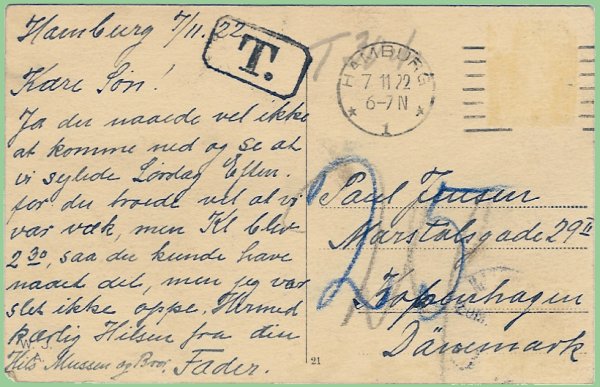 Hamburg 7/11. 22.
Kære Søn!
Ja du naaede vel ikke
at komme ned og se at
vi sejlede Lørdag Eften.
for du troede vel at vi
var væk, men Kl blev
2 30, saa du kunde have
naaet det, men jeg var
slet ikke oppe. Hermed
kærlig Hilsen fra din
Hils Mussen og Bror. Fader.
T.
HAMBURG
7 11 22
6-7 N
1
25
Paul Jensen
Marstalsgade 29 II
Koppenhagen
Dänemark
21